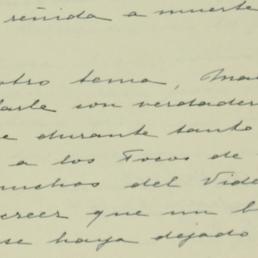 reñida a muerte
otro tema, Ma
larle son verdader
e durante tanto
a los Focos de
muchos del Vide
creer que un b
se haya dejado